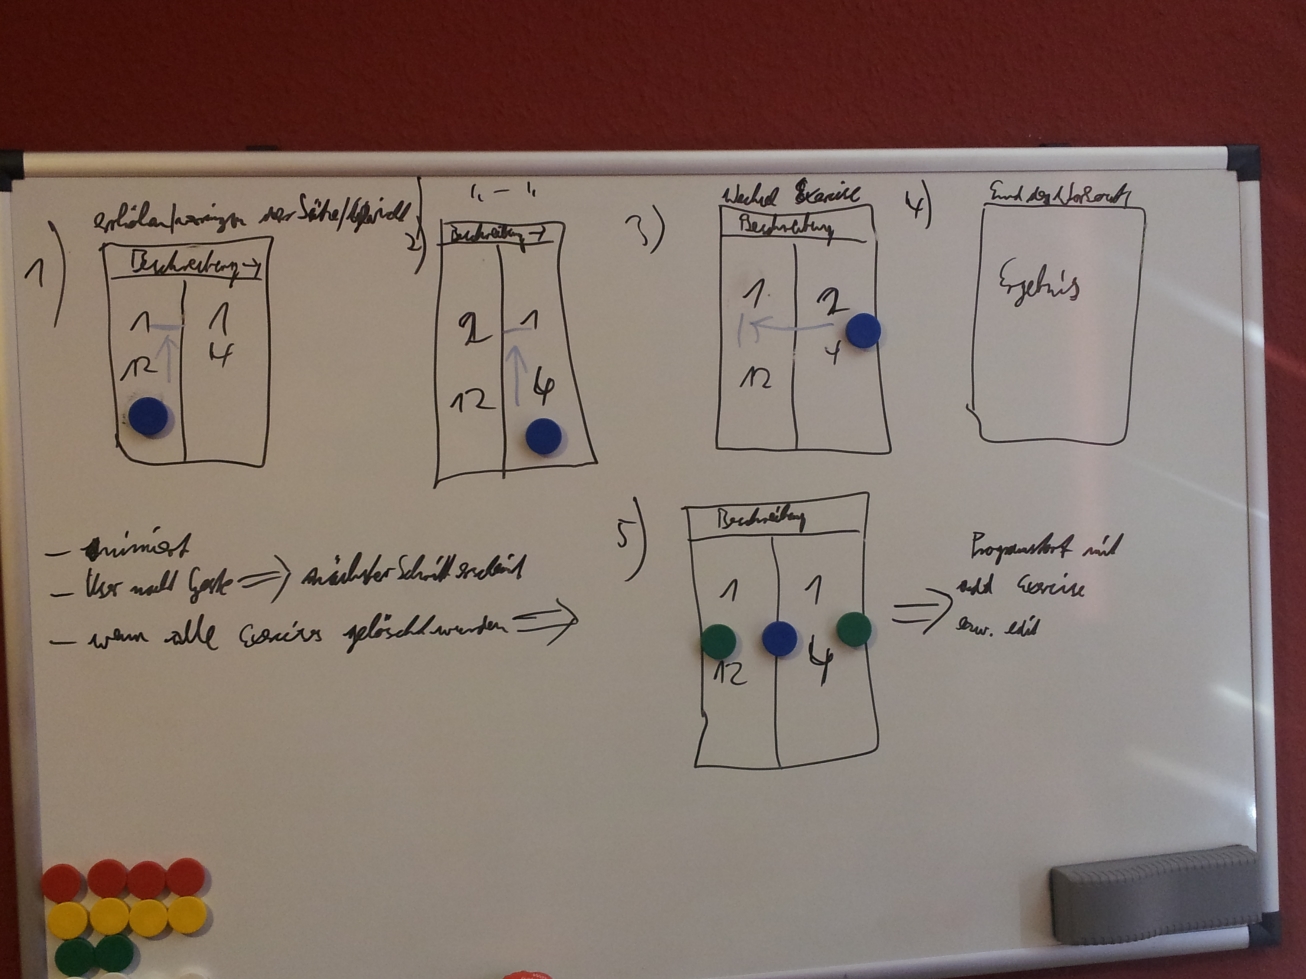 1)
erhöhen/verringern der Sätze/
Beschreibung →
1 1
12 4
2)
" – "
Beschreibung →
2 1
12 4
3)
Wechsel Exercise
Beschreibung
1 2
12 4
4)
End des Workouts
Ergebnis
– animiert
– User macht Geste ⇒ nächster Schritt erscheint
– wenn alle Exercises gelöscht wurden ⇒
5)
Beschreibung
1 1
12 4
⇒ Programstart mit
add Exercise
bzw. edit